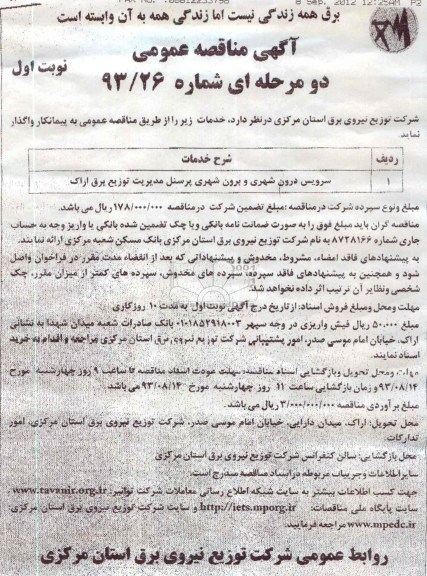 8 Sep. 2012 12:25AM P2
برق همه زندگی نیست اما زندگی همه به آن وابسته است
آگهی مناقصه عمومی
نوبت اول
دو مرحله ای شماره ۹۳/۲۶
شرکت توزیع نیروی برق استان مرکزی درنظر دارد، خدمات زیر را از طریق مناقصه عمومی به پیمانکار واگذار
نماید.
ردیف شرح خدمات
۱ سرویس درون شهری و برون شهری پرسنل مدیریت توزیع برق اراک
مبلغ ونوع سپرده شرکت درمناقصه :مبلغ تضمین شرکت درمناقصه ۱۷۸/۰۰۰/۰۰۰ ریال می باشد.
مناقصه گران باید مبلغ فوق را به صورت ضمانت نامه بانکی ویا چک تضمین شده بانکی یا واریز وجه به حساب
جاری شماره ۸۷۲۸۱۶۶ به نام شرکت توزیع نیروی برق استان مرکزی بانک مسکن شعبه مرکزی ارائه نمایند.
به پیشنهادهای فاقد امضاء، مشروط، مخدوش و پیشنهاداتی که بعد از انقضاء مدت مقرر در فراخوان واصل
شود و همچنین به پیشنهادهای فاقد سپرده، سپرده های مخدوش، سپرده های کمتر از میزان مقرر، چک
شخصی ونظایر آن ترتیب اثر داده نخواهد شد.
مهلت ومحل ومبلغ فروش اسناد: از تاریخ درج آگهی نوبت اول به مدت ۱۰ روزکاری
مبلغ ۵۰.۰۰۰ ریال فیش واریزی در وجه سپهر ۰۱۰۱۸۵۲۹۱۸۰۰۳ بانک صادرات شعبه میدان شهدا به نشانی
اراک، خیابان امام موسی صدر، امور پشتیبانی شرکت توزیع نیروی برق استان مرکزی مراجعه و اقدام به خرید
اسناد نمایند.
مهلت ومحل تحویل وبازگشایی اسناد مناقصه: مهلت عودت اسناد مناقصه تا ساعت ۹ روز چهارشنبه مورخ
۹۳/۰۸/۱۴ و زمان بازگشایی ساعت ۱۱ روز چهارشنبه مورخ ۹۳/۰۸/۱۴ می باشد.
مبلغ برآوردی مناقصه ۳/۰۰۰/۰۰۰/۰۰۰ ریال می باشد.
محل تحویل: اراک، میدان دارایی، خیابان امام موسی صدر، شرکت توزیع نیروی برق استان مرکزی، امور
تدارکات.
محل بازگشایی: سالن کنفرانس شرکت توزیع نیروی برق استان مرکزی
سایر اطلاعات وجزییات مربوطه دراسناد مناقصه مندرج است.
جهت کسب اطلاعات بیشتر به سایت شبکه اطلاع رسانی معاملات شرکت توانیر: www.tavanir.org.ir ،
سایت پایگاه ملی مناقصات: http://iets.mporg.ir و سایت شرکت توزیع نیروی برق استان مرکزی:
www.mpedc.ir مراجعه فرمایید.
روابط عمومی شرکت توزیع نیروی برق استان مرکزی